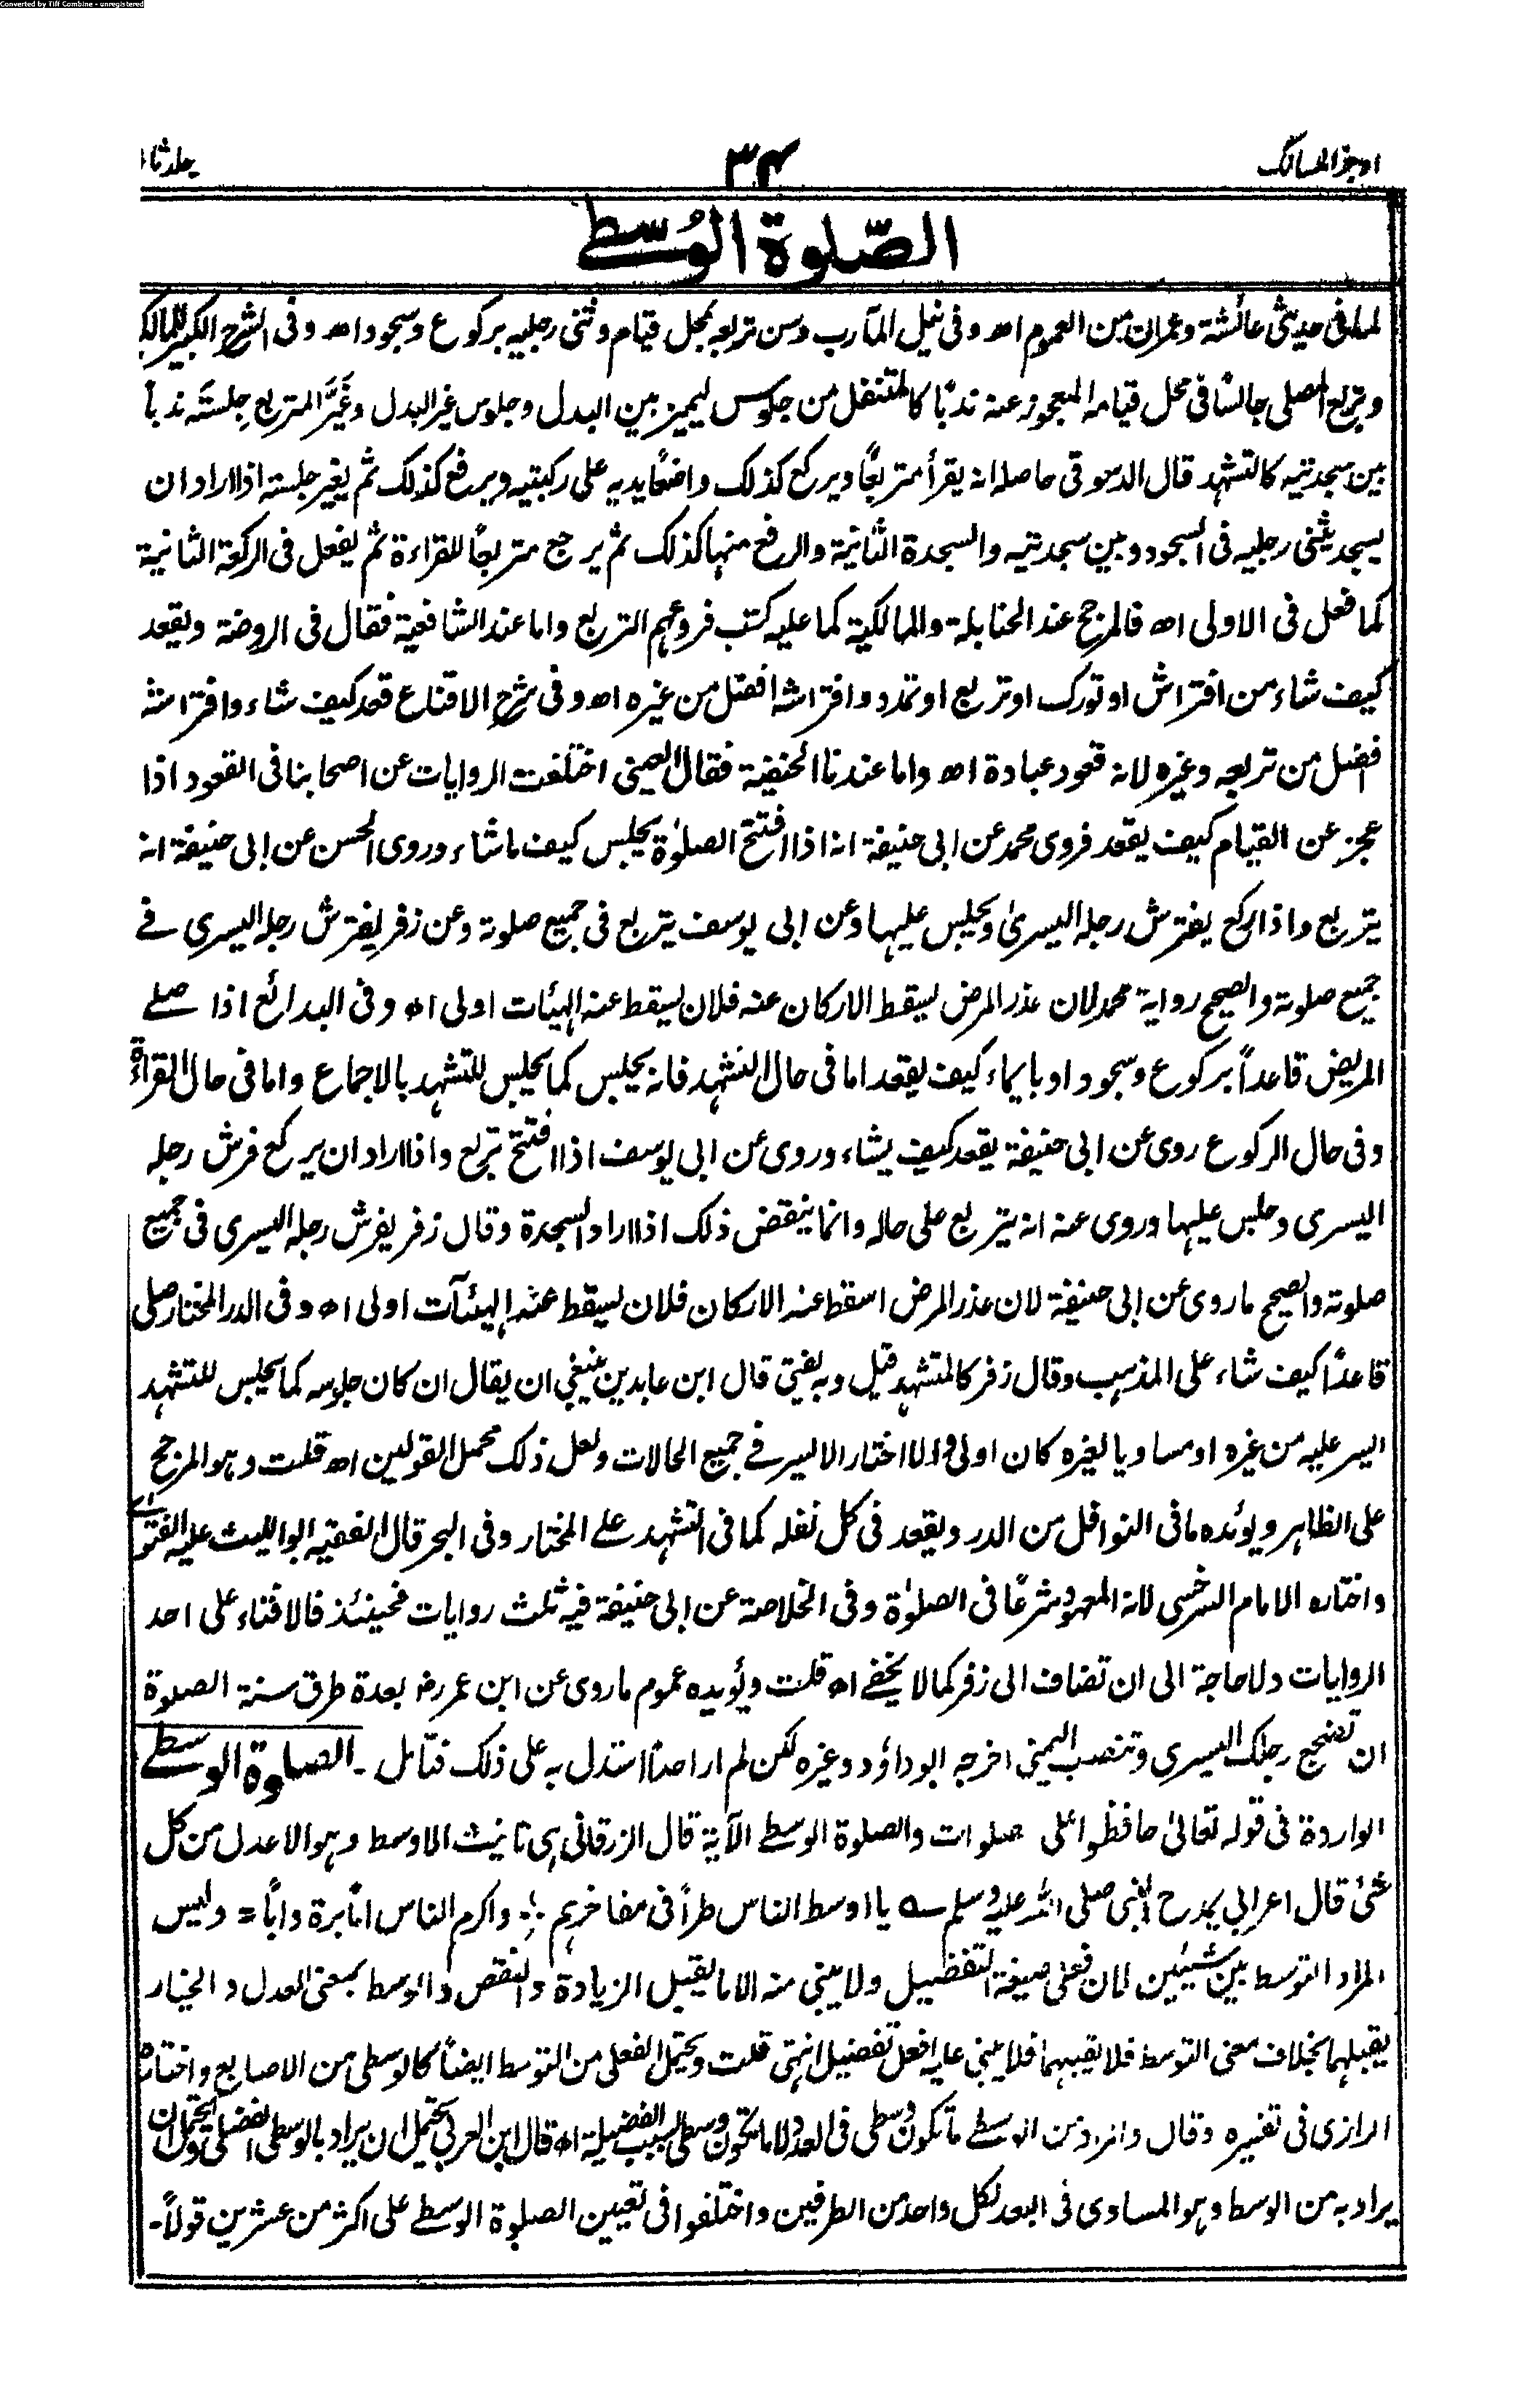 Converted by Tiff Combine - unregistered
اوجز المسالک
۳۴
جلد ثا
الصّلوة الوُسطے
لما فى حديث عائشة وعمران من العموم اھ وفى نيل المآرب وسن تربعه بمحل قيام وثنى رجليه بركوع وسجود اھ وفى الشرح الكبير للمالكي
وتربع المصلى جالسًا فى محل قيامه المعجوز عنه ندبًا كالمتنفل من جلوس ليميز بين البدل وجلوس غير البدل وغيَّر المتربع جِلسته ندبًا
بين سجدتيه كالتشهد قال الدسوقى حاصله انه يقرأ متربعًا ويركع كذلك واضعًا يديه على ركبتيه ويرفع كذلك ثم يغير جلسته اذا اراد ان
يسجد يثنى رجليه فى السجود وبين سجدتيه والسجدة الثانية والرفع منها كذلك ثم يرجع متربعًا للقراءة ثم يفعل فى الركعة الثانية
كما فعل فى الاولى اھ فالمرجح عند الحنابلة والمالكية كما عليه كتب فروعهم التربع واما عند الشافعية فقال فى الروضة ويقعد
كيف شاء من افتراش او تورك او تربع او تمدد وافتراشه افضل من غيره اھ وفى شرح الاقناع قعد كيف شاء وافتراشه
افضل من تربعه وغيره لانه قعود عبادة اھ واما عندنا الحنفية فقال العينى اختلفت الروايات عن اصحابنا فى القعود اذا
عجز عن القيام كيف يقعد فروى محمد عن ابى حنيفة انه اذا افتتح الصلوٰة يجلس كيف ما شاء وروى الحسن عن ابى حنيفة انه
يتربع واذا ركع يفترش رجله اليسرىٰ ويجلس عليها وعن ابى يوسف يتربع فى جميع صلوته وعن زفر يفترش رجله اليسرى فے
جميع صلوته والصحيح رواية محمد لان عذر المرض يسقط الاركان عنه فلان يسقط عنه الهيئات اولى اھ وفى البدائع اذا صلے
المريض قاعداً بركوع وسجود او بايماء كيف يقعد اما فى حال التشهد فانه يجلس كما يجلس للتشهد بالاجماع واما فى حال القراءة
وفى حال الركوع روى عن ابى حنيفة يقعد كيف يشاء وروى عن ابى يوسف اذا افتتح تربع واذا اراد ان يركع فرش رجله
اليسرى وجلس عليها وروى عنه انه يتربع على حاله وانما ينقض ذلك اذا اراد السجدة وقال زفر يفرش رجله اليسرى فى جميع
صلوته والصحيح ما روى عن ابى حنيفة لان عذر المرض اسقط عنه الاركان فلان يسقط عنه الهيئآت اولى اھ وفى الدر المختار صلى
قاعدًا كيف شاء على المذهب وقال زفر كالمتشهد قيل وبه يفتى قال ابن عابدين ينبغى ان يقال ان كان جلوسه كما يجلس للتشهد
ايسر عليه من غيره او مساويا لغيره كان اولى والا اختار الايسر فے جميع الحالات ولعل ذلك محمل القولين اھ قلت وهو المرجح
على الظاهر ويؤيده ما فى النوافل من الدر ويقعد فى كل نفله كما فى التشهد علے المختار وفى البحر قال الفقيه ابو الليث عليه الفتوے
واختاره الامام السرخسى لانه المعهود شرعًا فى الصلوٰة وفى الخلاصة عن ابى حنيفة فيه ثلث روايات فحينئذ فالافتاء على احد
الروايات ولا حاجة الى ان تضاف الى زفر كما لا يخفے اھ قلت ويؤيده عموم ما روى عن ابن عمر رضـ بعدة طرق سنة الصلوة
ان تضجع رجلك اليسرى وتنصب اليمنى اخرجه ابو داؤد وغيره لكن لم ار احدًا استدل به على ذلك فتأمل ۔ الصلوة الوسطے
الواردة فى قوله تعالىٰ حافظوا على صلوات والصلوة الوسطے الآية قال الزرقانى هى تانيث الاوسط وهو الاعدل من كل
شئ قال اعرابى يمدح النبى صلى الله عليه وسلم ؎ يا اوسط الناس طرأ فى مفاخرهم ؞ واكرم الناس امّا برة وابًا = وليس
المراد التوسط بين شيئين لان فعلى صيغة التفضيل ولا يبنى منه الا ما يقبل الزيادة والنقص والوسط بمعنى العدل والخيار
يقبلهما بخلاف معنى التوسط فلا يقبلهما فلا يبنى عليه افعل تفضيل انتهى قلت ويحتمل الفعلى من التوسط ايضًا كالوسطى من الاصابع واختاره
الرازى فى تفسيره وقال والمراد من الوسطے ما تكون وُسطى فى العدد لا ما تكون وسطى بسبب الفضيلة اھ قال ابن العربى يحتمل ان يراد بالوسطى الفضلى ويحتمل ان
يراد به من الوسط وهو المساوى فى البعد لكل واحد من الطرفين واختلفوا فى تعيين الصلوة الوسطے على اكثر من عشرين قولاً۔